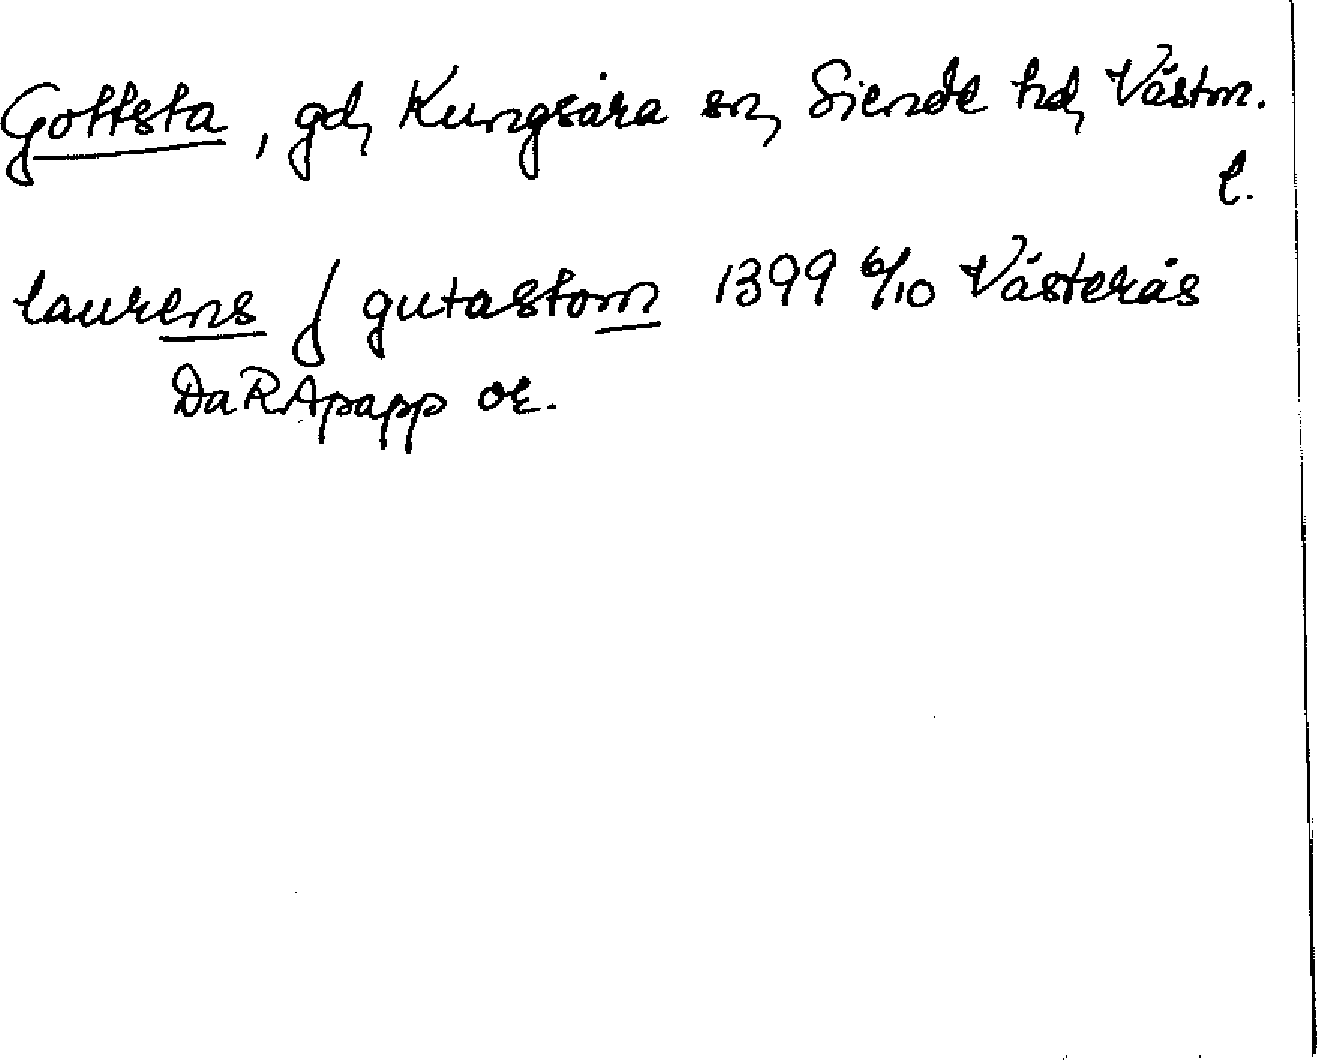 Gottsta, gd, Kungsåra sn, Siende hd, Västm.
l.
laurens j gutastom 1399 6/10 Västerås
DaRApapp or.